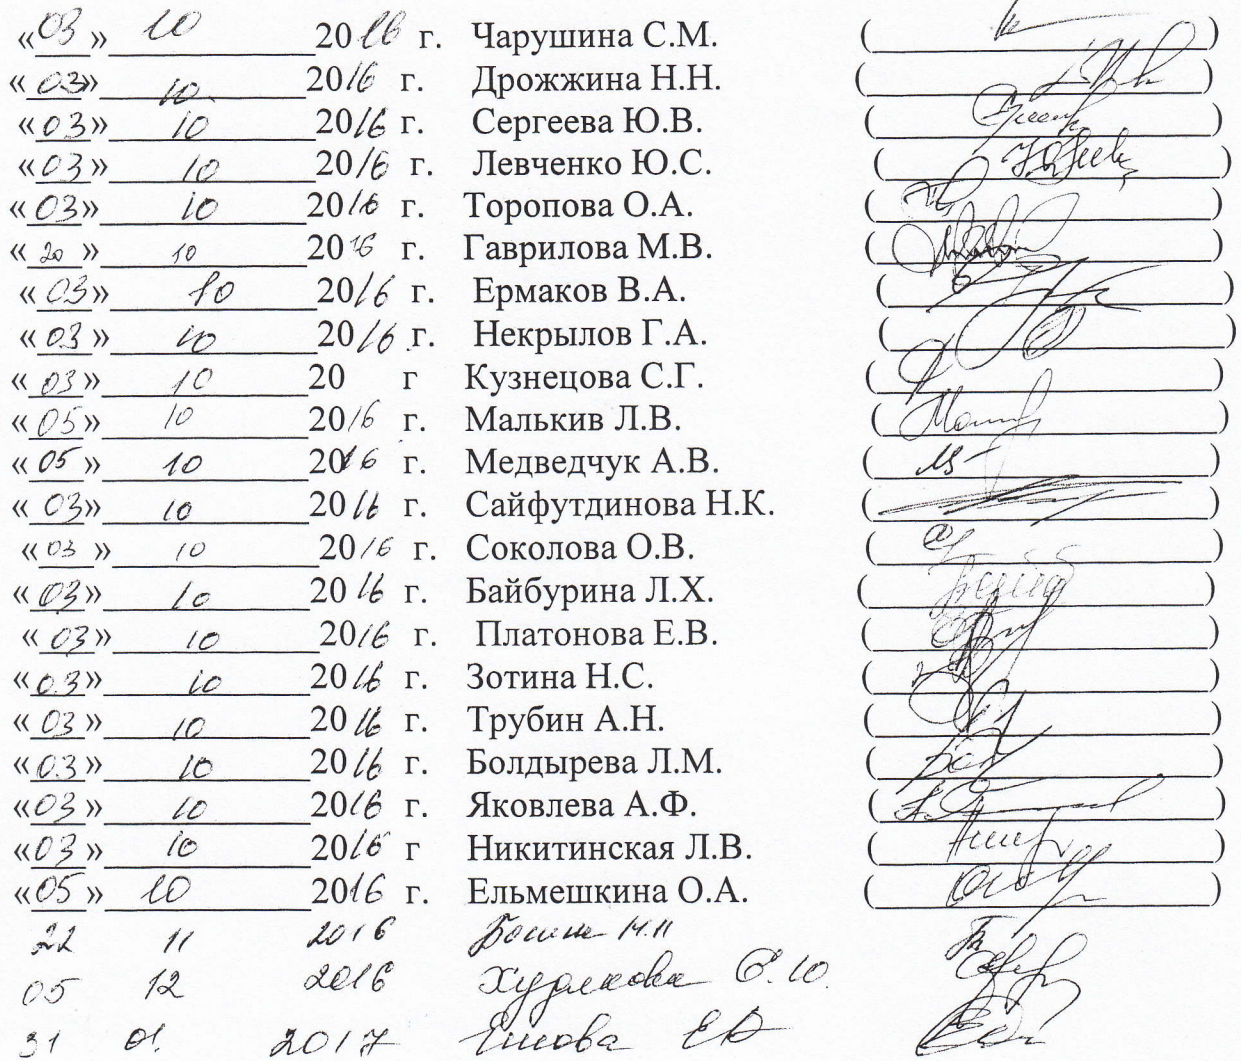 «03» 10 2016 г. Чарушина С.М. ( )
«03» 10. 2016 г. Дрожжина Н.Н. ( )
«03» 10 2016 г. Сергеева Ю.В. ( )
«03» 10 2016 г. Левченко Ю.С. ( )
«03» 10 2016 г. Торопова О.А. ( )
«20» 10 2016 г. Гаврилова М.В. ( )
«03» 10 2016 г. Ермаков В.А. ( )
«03» 10 2016 г. Некрылов Г.А. ( )
«03» 10 20 г Кузнецова С.Г. ( )
«05» 10 2016 г. Малькив Л.В. ( )
«05» 10 2016 г. Медведчук А.В. ( )
«03» 10 2016 г. Сайфутдинова Н.К. ( )
«03» 10 2016 г. Соколова О.В. ( )
«03» 10 2016 г. Байбурина Л.Х. ( )
«03» 10 2016 г. Платонова Е.В. ( )
«03» 10 2016 г. Зотина Н.С. ( )
«03» 10 2016 г. Трубин А.Н. ( )
«03» 10 2016 г. Болдырева Л.М. ( )
«03» 10 2016 г. Яковлева А.Ф. ( )
«03» 10 2016 г Никитинская Л.В. ( )
«05» 10 2016 г. Ельмешкина О.А. ( )
22 11 2016
05 12 2016 Худякова
31 01. 2017